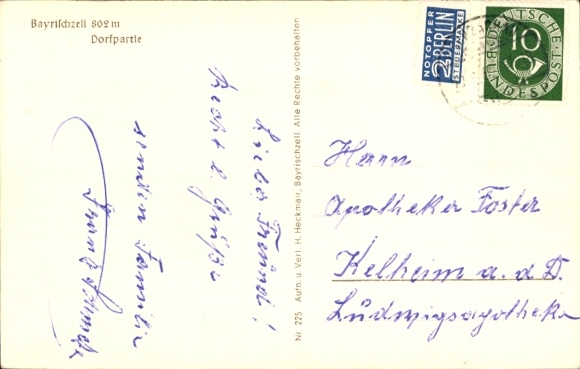 Bayrischzell 802 m
Dorfpartie
NOTOPFER
2 BERLIN
STEUERMARKE
DEUTSCHE
BUNDESPOST
10
Lieber Freund!
Recht l. Grüße
senden Familie
Franz
Nr. 225 Aufn. u. Verl. H. Heckmair, Bayrischzell. Alle Rechte vorbehalten
Herrn
Apotheker Foster
Kelheim a. d. D.
Ludwigsapotheke